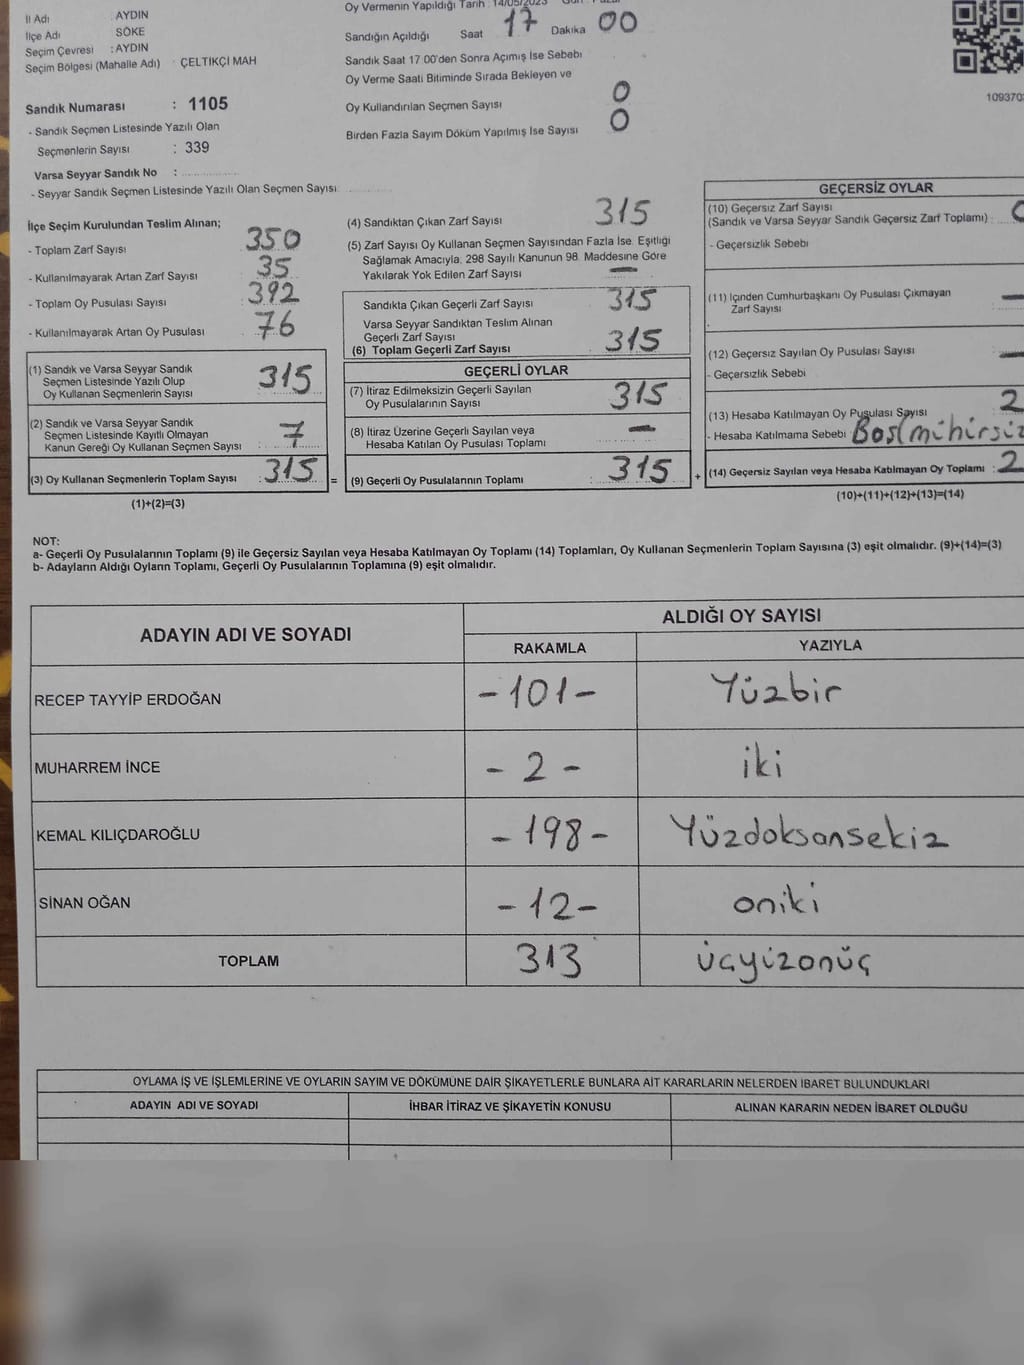 Oy Vermenin Yapıldığı Tarih : 14/05/2023
İl Adı : AYDIN
İlçe Adı : SÖKE
Seçim Çevresi : AYDIN
Seçim Bölgesi (Mahalle Adı) : ÇELTİKÇİ MAH
Sandığın Açıldığı Saat 17 Dakika 00
Sandık Saat 17 00'den Sonra Açımış İse Sebebi
Oy Verme Saati Bitiminde Sırada Bekleyen ve
Oy Kullandırılan Seçmen Sayısı 0
Birden Fazla Sayım Döküm Yapılmış İse Sayısı 0
109370
Sandık Numarası : 1105
- Sandık Seçmen Listesinde Yazılı Olan
Seçmenlerin Sayısı : 339
Varsa Seyyar Sandık No :
- Seyyar Sandık Seçmen Listesinde Yazılı Olan Seçmen Sayısı
İlçe Seçim Kurulundan Teslim Alınan;
- Toplam Zarf Sayısı : 350
- Kullanılmayarak Artan Zarf Sayısı : 35
- Toplam Oy Pusulası Sayısı : 392
- Kullanılmayarak Artan Oy Pusulası : 76
(1) Sandık ve Varsa Seyyar Sandık
Seçmen Listesinde Yazılı Olup
Oy Kullanan Seçmenlerin Sayısı : 315
(2) Sandık ve Varsa Seyyar Sandık
Seçmen Listesinde Kayıtlı Olmayan
Kanun Gereği Oy Kullanan Seçmen Sayısı : 7
(3) Oy Kullanan Seçmenlerin Toplam Sayısı : 315 =
(1)+(2)=(3)
(4) Sandıktan Çıkan Zarf Sayısı 315
(5) Zarf Sayısı Oy Kullanan Seçmen Sayısından Fazla İse, Eşitliği
Sağlamak Amacıyla, 298 Sayılı Kanunun 98. Maddesine Göre
Yakılarak Yok Edilen Zarf Sayısı —
Sandıkta Çıkan Geçerli Zarf Sayısı 315
Varsa Seyyar Sandıktan Teslim Alınan
Geçerli Zarf Sayısı
(6) Toplam Geçerli Zarf Sayısı 315
GEÇERLİ OYLAR
(7) İtiraz Edilmeksizin Geçerli Sayılan
Oy Pusulalarının Sayısı 315
(8) İtiraz Üzerine Geçerli Sayılan veya
Hesaba Katılan Oy Pusulası Toplamı —
(9) Geçerli Oy Pusulalarının Toplamı : 315 +
GEÇERSİZ OYLAR
(10) Geçersiz Zarf Sayısı
(Sandık ve Varsa Seyyar Sandık Geçersiz Zarf Toplamı) :
- Geçersizlik Sebebi
(11) İçinden Cumhurbaşkanı Oy Pusulası Çıkmayan
Zarf Sayısı —
(12) Geçersiz Sayılan Oy Pusulası Sayısı —
- Geçersizlik Sebebi
(13) Hesaba Katılmayan Oy Pusulası Sayısı 2
- Hesaba Katılmama Sebebi Boş(mühirsiz
(14) Geçersiz Sayılan veya Hesaba Katılmayan Oy Toplamı : 2
(10)+(11)+(12)+(13)=(14)
NOT:
a- Geçerli Oy Pusulalarının Toplamı (9) ile Geçersiz Sayılan veya Hesaba Katılmayan Oy Toplamı (14) Toplamları, Oy Kullanan Seçmenlerin Toplam Sayısına (3) eşit olmalıdır. (9)+(14)=(3)
b- Adayların Aldığı Oyların Toplamı, Geçerli Oy Pusulalarının Toplamına (9) eşit olmalıdır.
ADAYIN ADI VE SOYADI
ALDIĞI OY SAYISI
RAKAMLA YAZIYLA
RECEP TAYYİP ERDOĞAN -101- Yüzbir
MUHARREM İNCE - 2 - iki
KEMAL KILIÇDAROĞLU -198- Yüzdoksansekiz
SİNAN OĞAN -12- oniki
TOPLAM 313 üçyüzonüç
OYLAMA İŞ VE İŞLEMLERİNE VE OYLARIN SAYIM VE DÖKÜMÜNE DAİR ŞİKAYETLERLE BUNLARA AİT KARARLARIN NELERDEN İBARET BULUNDUKLARI
ADAYIN ADI VE SOYADI İHBAR İTİRAZ VE ŞİKAYETİN KONUSU ALINAN KARARIN NEDEN İBARET OLDUĞU